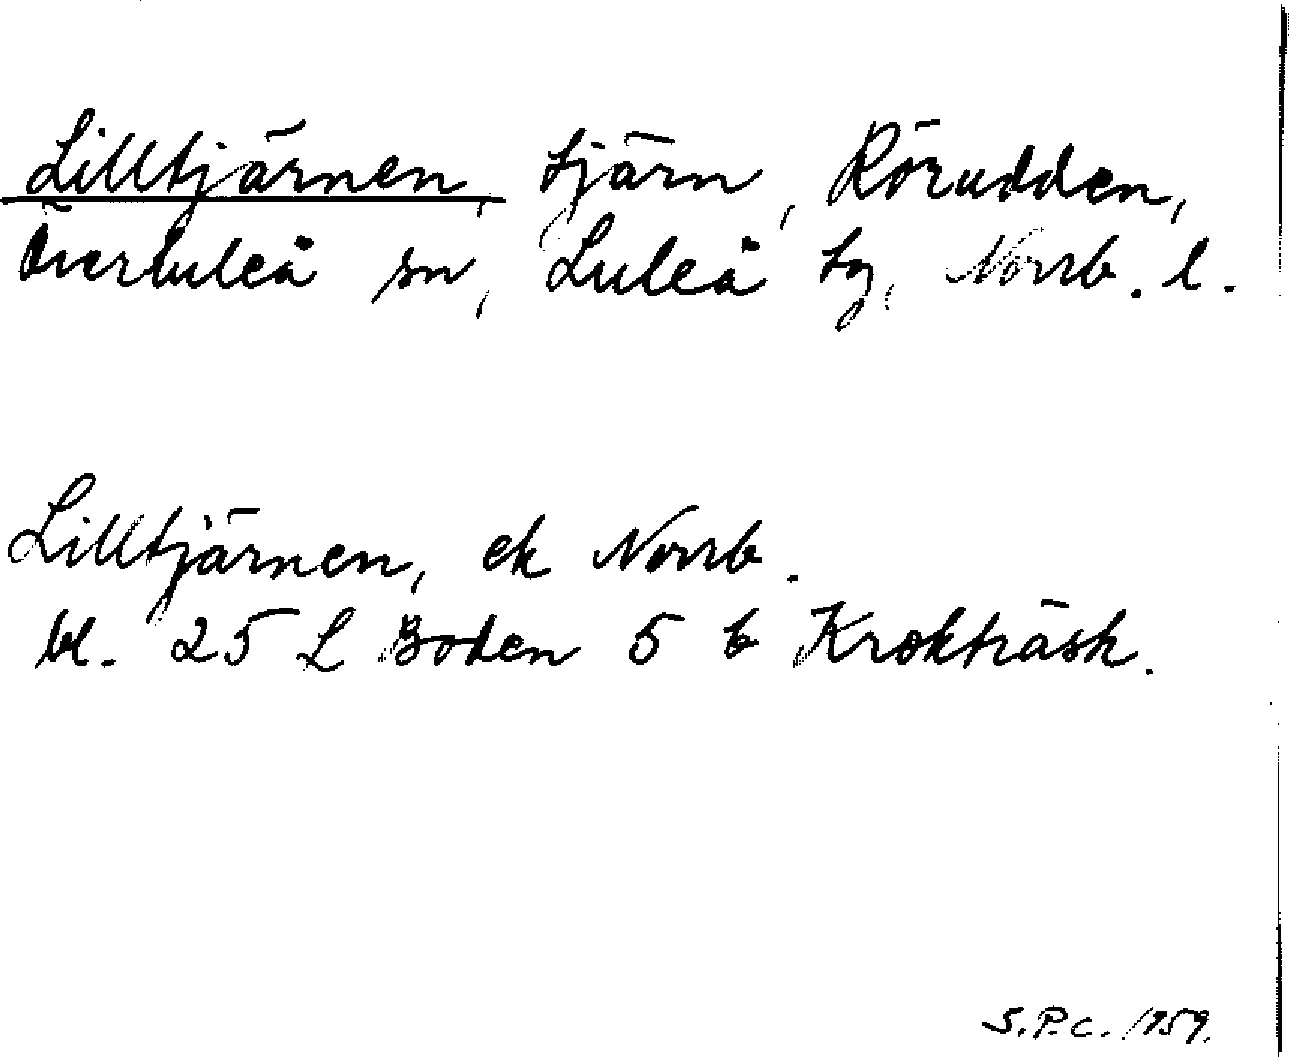 Lilltjärnen, tjärn, Rörudden,
Överluleå sn, Luleå tg, Norrb. l.
Lilltjärnen, ek Norrb.
bl. 25 L Boden 5 b Krokträsk.
S.P.C. 1959.